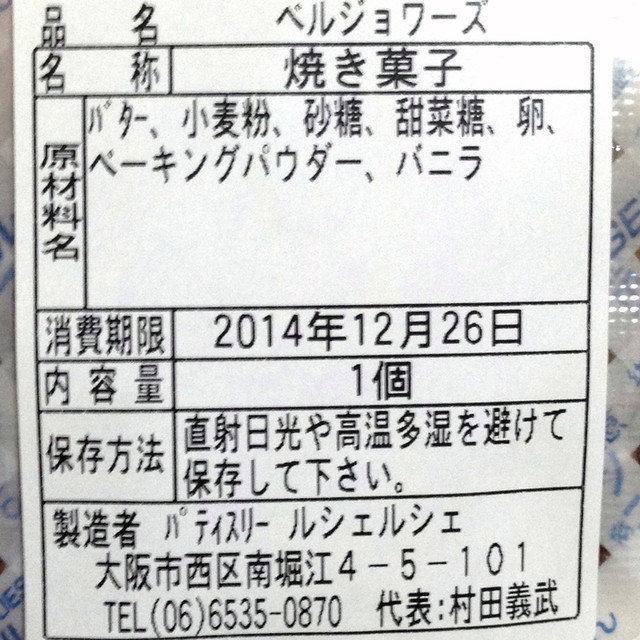 品名 ベルジョワーズ
名称 焼き菓子
原材料名 ﾊﾞﾀｰ、小麦粉、砂糖、甜菜糖、卵、
ベーキングパウダー、バニラ
消費期限 2014年12月26日
内容量 1個
保存方法 直射日光や高温多湿を避けて
保存して下さい。
製造者 ﾊﾟﾃｨｽﾘｰ ルシェルシェ
大阪市西区南堀江4-5-101
TEL(06)6535-0870 代表:村田義武